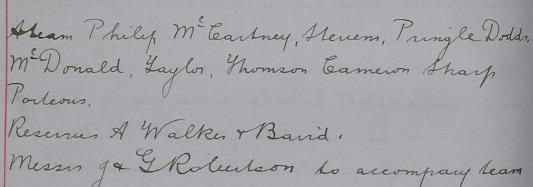 A team Philip McCartney, Stevens, Pringle Dodds,
McDonald, Taylor, Thomson Cameron Sharp
Porteous.
Reserves A Walker & Baird.
Messrs J & G Robertson to accompany team